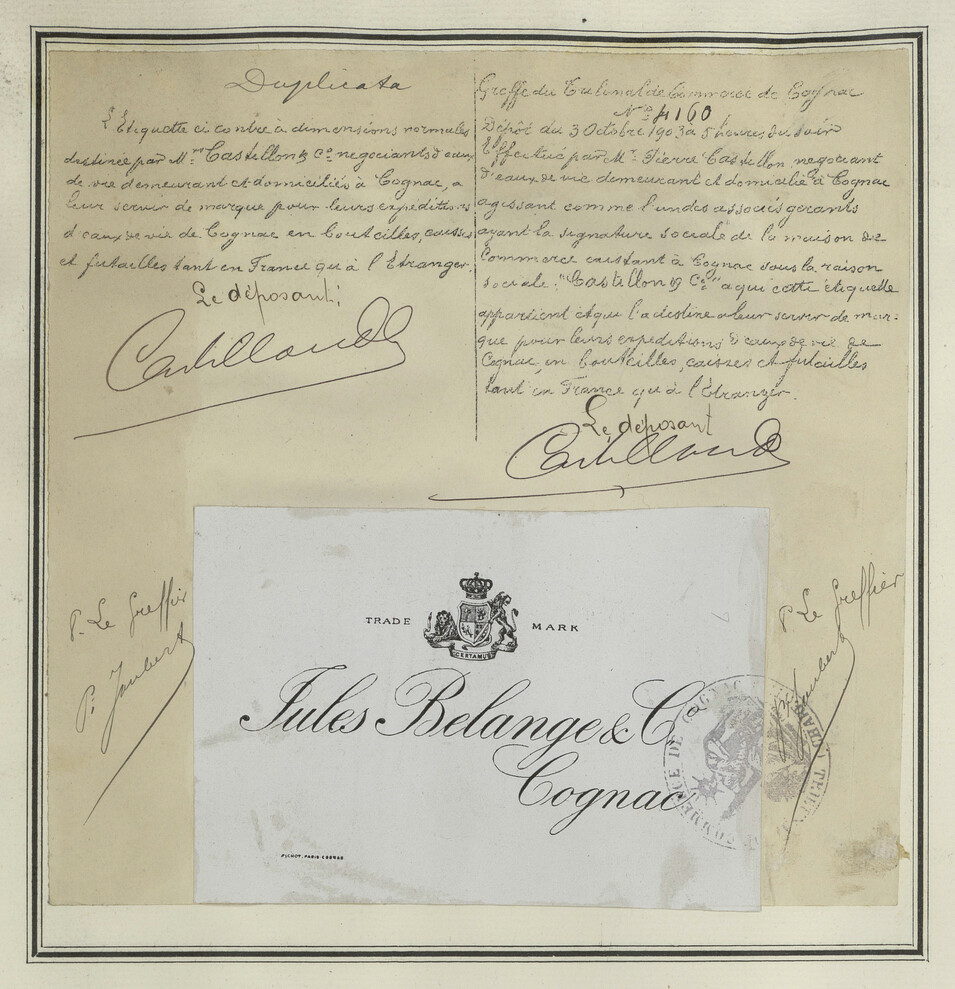 Duplicata
L'Etiquette ci contre à dimensions normales
destinée par Mrs Castillon & Co négociants d'eaux
de vie demeurant et domiciliés à Cognac, a
leur servir de marque pour leurs expéditions
d'eaux de vie de Cognac en bouteilles, caisses
et futailles tant en France qu'à l'Etranger.
Le déposant;
Castillon & Co
Greffe du Tribunal de Commerce de Cognac
No 4160
Dépôt du 3 Octobre 1903 à 5 heures du soir
Effectué par Mr Pierre Castillon négociant
d'eaux de vie demeurant et domicilié à Cognac
agissant comme l'un des associés gérants
ayant la signature sociale de la maison de
Commerce existant à Cognac sous la raison
sociale: "Castillon & Co" a qui cette étiquette
appartient et qui l'a destine a leur servir de mar-
que pour leurs expéditions d'eaux de vie de
Cognac, en bouteilles, caisses et futailles
tant en France qu'à l'Etranger.
Le déposant
Castillon & Co
P. Le Greffier
P. Joubert
TRADE MARK
CERTAMUS
Jules Belange & Co
Cognac
PICHOT, PARIS
P. Le Greffier
Joubert
DE COGNAC